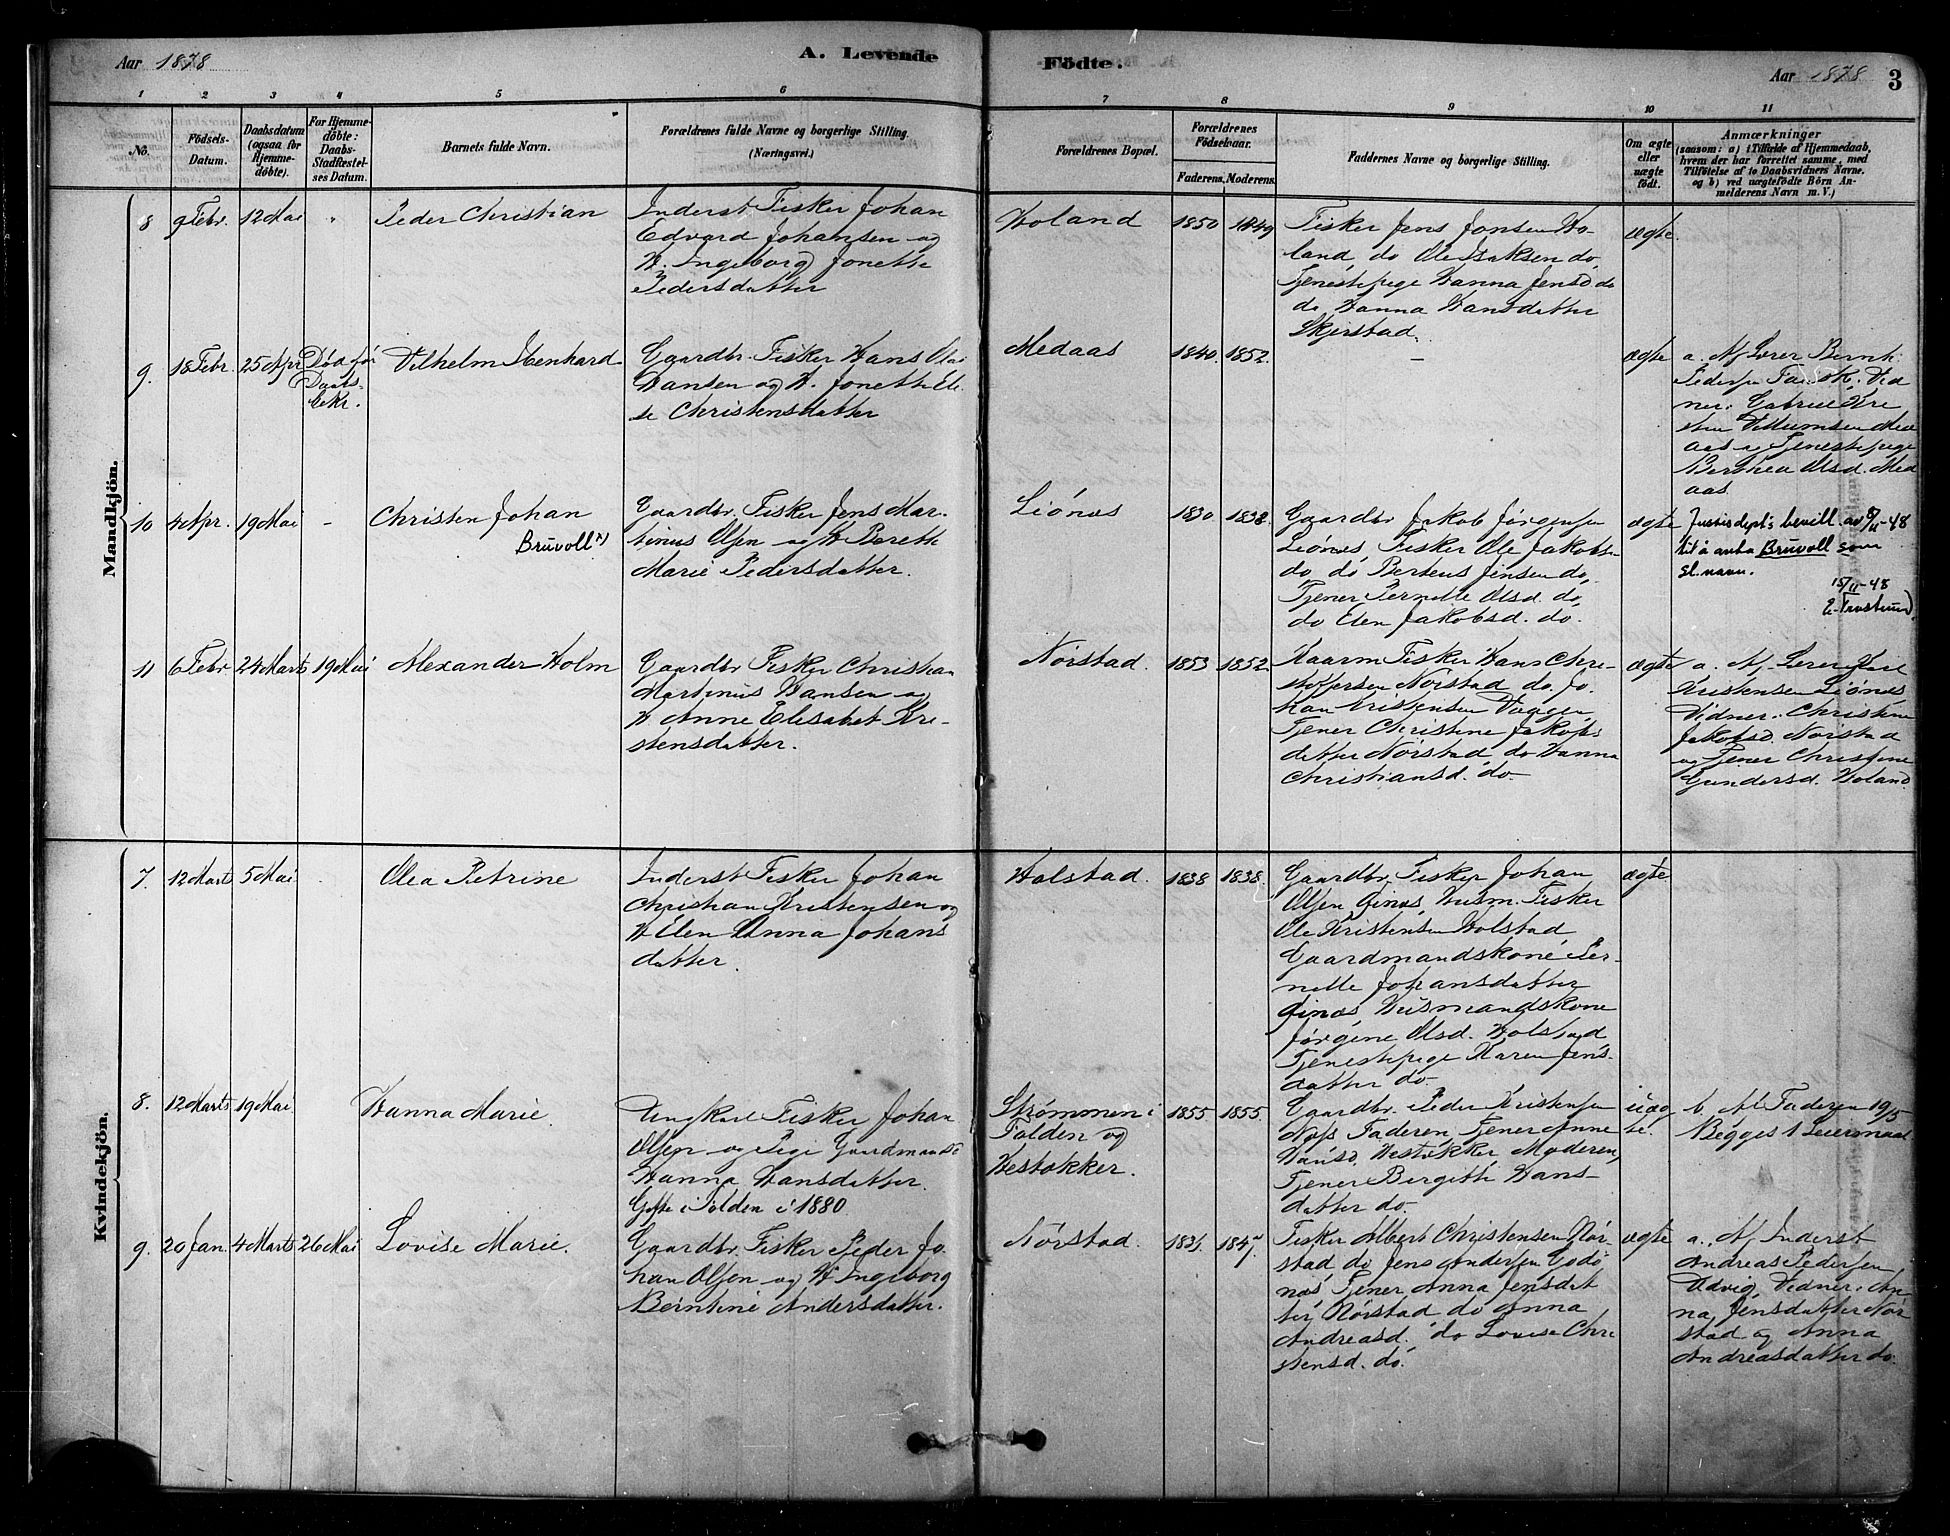 Aar 1878
A. Levende
Födte.
Aar 1878
3
1 2 3 4 5 6 7 8 9 10 11
No.
Födsels-
Datum.
Daabsdatum
(ogsaa for
Hjemme-
döbte).
For Hjemme-
döbte:
Daabs-
Stadfæstel-
ses Datum.
Barnets fulde Navn.
Forældrenes fulde Navne og borgerlige Stilling.
(Næringsvei.)
Forældrenes Bopæl.
Forældrenes
Födselsaar.
Faderens. Moderens.
Faddernes Navne og borgerlige Stilling.
Om ægte
eller
uægte
födt.
Anmærkninger
(saasom: a) i Tilfælde af Hjemmedaab,
hvem der har forrettet samme, med
Tilföielse af to Daabsvidners Navne,
og b) ved uægtefödte Börn An-
melderens Navn m. V.)
Mandkjön.
8 9 Febr. 12 Mai "
Peder Christian
Inderst Fisker Johan
Edvard Johansen og
H. Ingeborg Jonette
Pedersdatter
Holand
1850 1849
Fisker Jens Jonsen Ho-
land do Ole Isaksen do,
Tjenestepige Hanna Jensd do
do Hanna Hansdatter
Skjerstad.
ægte.
9. 18 Febr. 25 Apr. Død før
Daabs-
bekr.
Vilhelm Ibenhard
Gaardbr. Fisker Hans Olai
Hansen og H. Jonette El-
se Christensdatter
Medaas
1840. 1852.
–
ægte
a. Af Lærer Bernh.
Pedersen Vid
ner: Gabriel Kri
sten Villumsen Med
aas og Tjenestepige
Berthea Olsd. Med
aas.
10 4 Apr. 19 Mai –
Christen Johan
Bruvoll x)
Gaardbr. Fisker Jens Mar-
tinus Olsen og H Bereth
Marie Pedersdatter.
Liønæs
1830 1838.
Gaardbr Jakob Jørgensen
Liønæs, Fisker Ole Jakobs-
do do Berteus Jensen do,
Tjener Pernelle Olsd. do
do Elen Jakobsd. do.
ægte
Justisdept's bevill. av 8/11-48
til å anta Bruvoll som
sl.navn.
15/11-48
11 6 Febr. 24 Marts 19 Mai
Alexander Holm
Gaardbr Fisker Christian
Martinus Hansen og
H Anne Elisabet Kri-
stensdatter.
Nørstad.
1853 1852
Kaarm. Fisker Hans Chri-
stoffersen Nørstad do. Jo-
han Kristensen Vaagen,
Tjener Christine Jakobs-
datter Nørstad do Hanna
Christiansd. do.
ægte
a. Af Lærer
Kristensen Liønæs
Vidner: Christine
Jakobsd. Nørstad
og Tjener Christine
Gundersd. Holand
Kvindekjön.
7. 12 Marts 5 Mai
Olea Petrine
Inderst Fisker Johan
Christian Kristensen og
H Elen Anna Johans
datter.
Holstad.
1838 1838.
Gaardbr. Fisker Johan
Olsen Ginas, Husm. Fisker
Ole Kristensen Holstad
Gaardmandskone Per-
nelle Johansdatter
Ginas, Husmandskone
Jørgine Olsd. Holstad
Tjenestepige Karen Jens-
datter do.
ægte.
8. 12 Marts 19 Mai
Hanna Marie
Ungkarl Fisker Johan
Olsen og Pige Gaardmands
Hanna Hansdatter.
Gifte i Folden i 1880
Strømmen i
Folden og
Hestøkker.
1855 1855.
Gaardbr. Peder Kristensen
Næs Faderen Tjener Anne
Hansd. Hestøkker Moderen,
Tjener Birgitte Hans-
datter do.
uæg
te.
b. Af Faderen 19/5
Begges 1 Leiermaal
9. 20 Jan. 4 Marts 26 Mai
Lovise Marie.
Gaardbr. Fisker Peder Jo-
han Olsen og H Ingeborg
Berntine Andersdatter.
Nørstad.
1847
Fisker Albert Christensen Nør-
stad do Jens Andersen Godø
næs, Tjener Anna Jensdat
ter, Nørstad do Anna
Andreasd. do Lovise Chri
stensd. do.
ægte
a. Af Inderst
Andreas Pedersen
Udvig, Vidner: An-
na Jensdatter Nør
stad og Anna
Andreasdatter do.